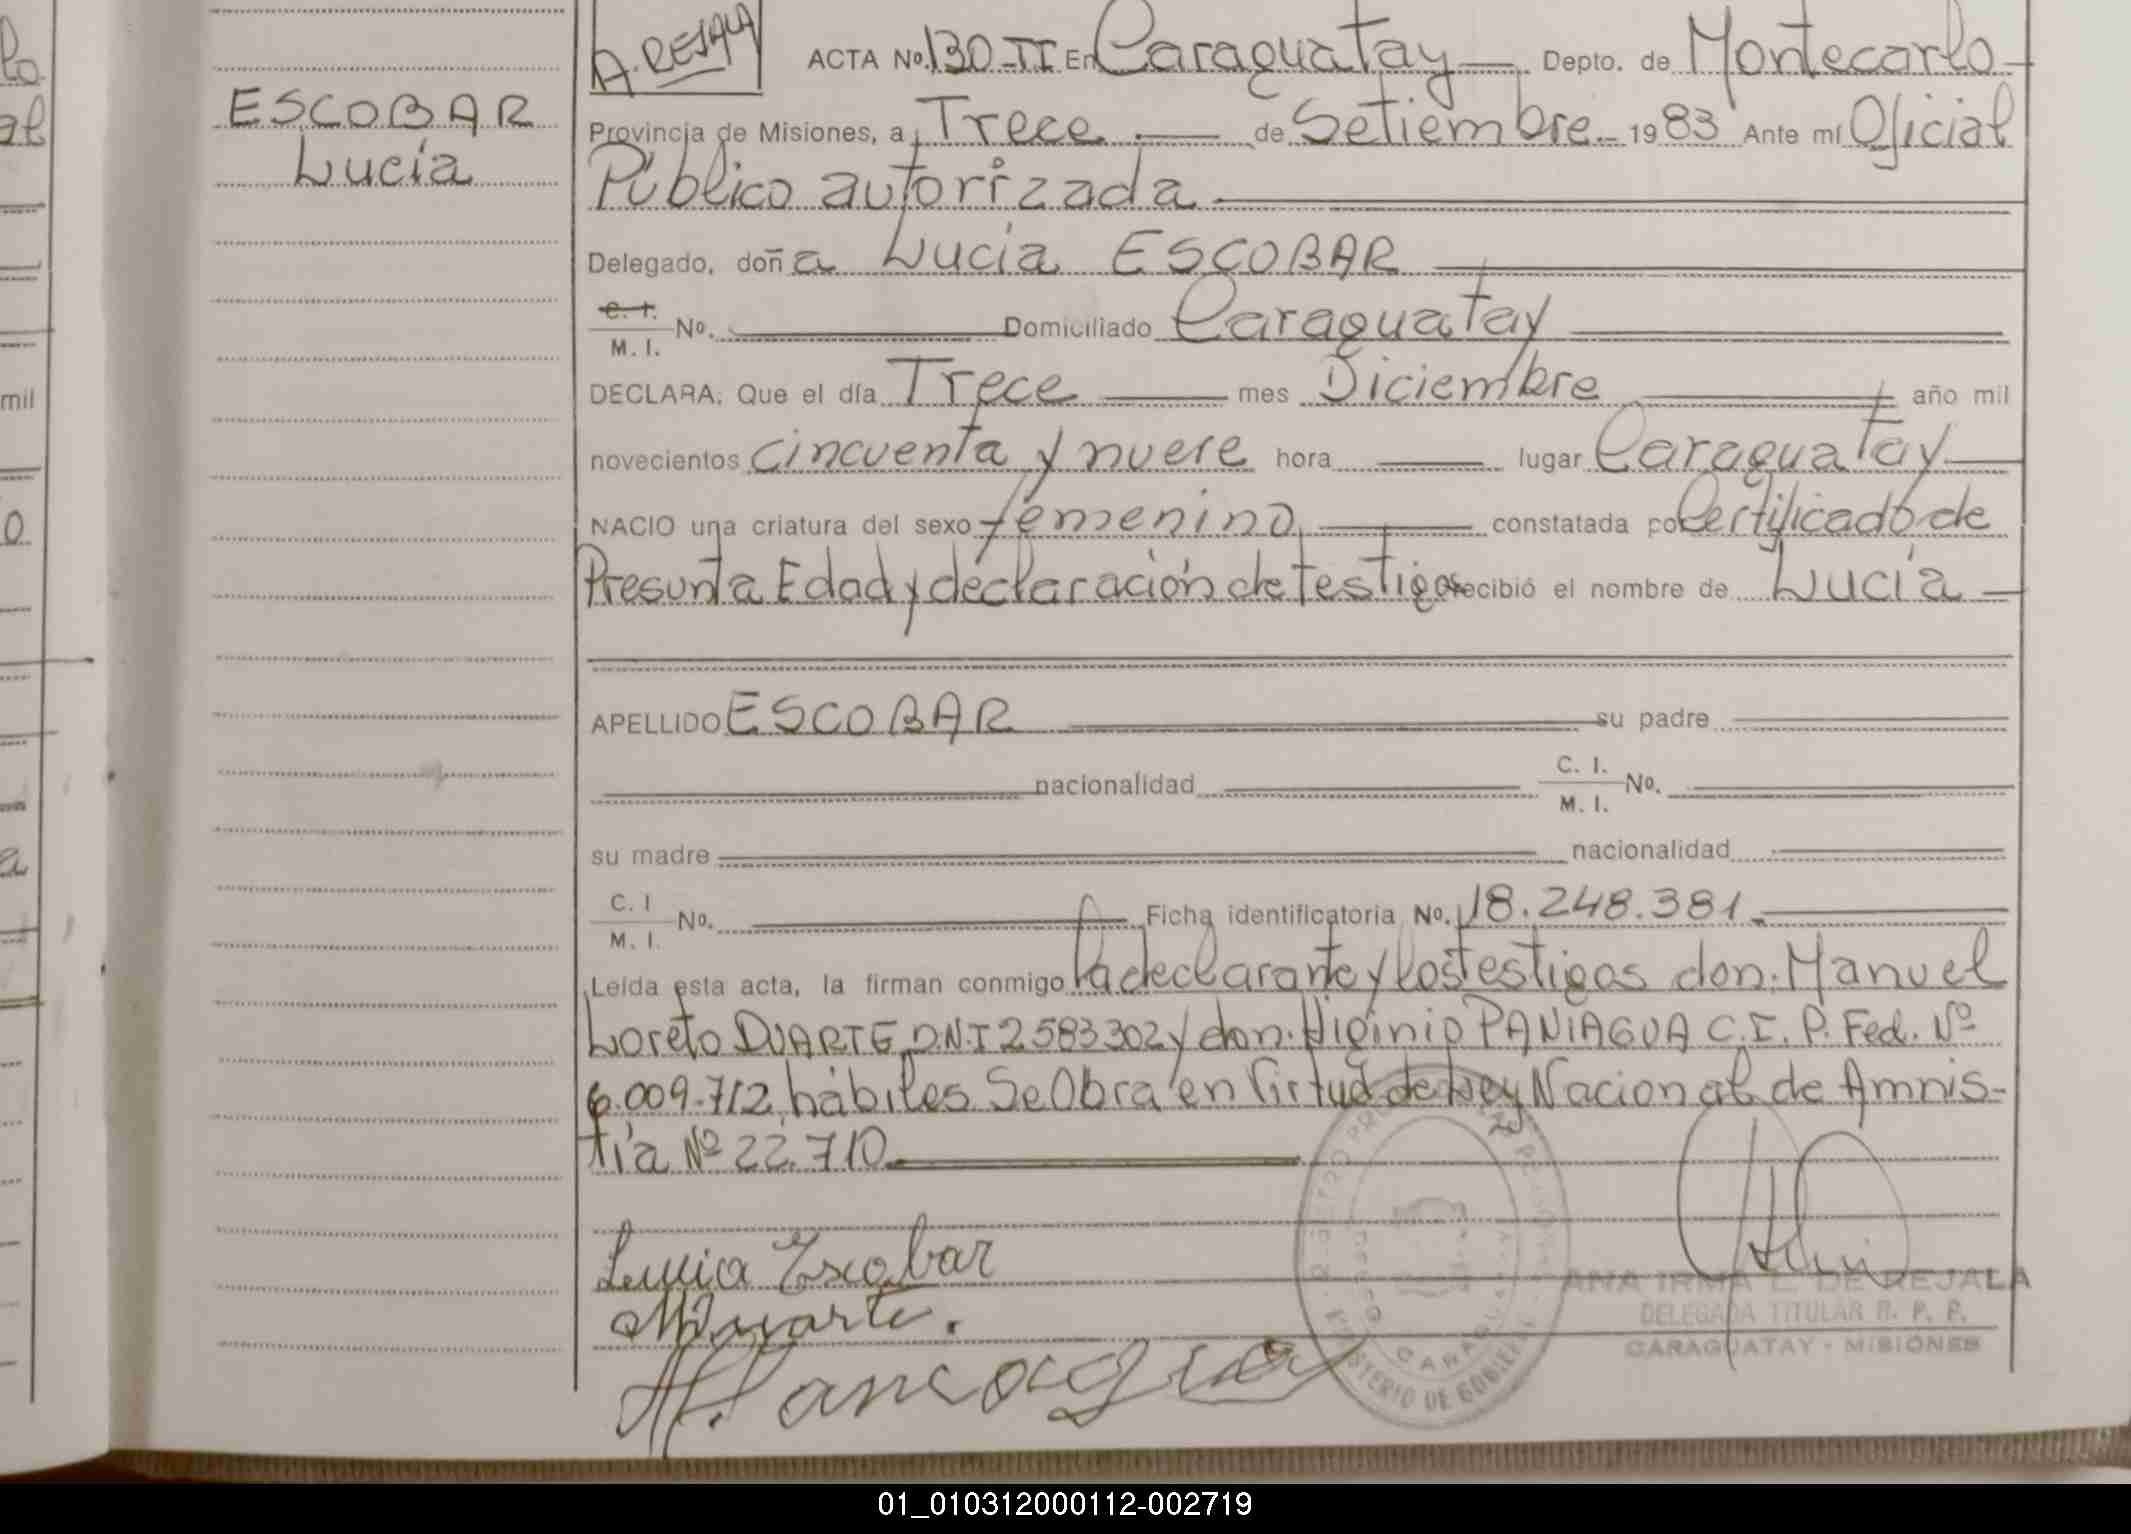 ESCOBAR
Lucía
A. REJALA
ACTA No. 130-II En Caraguatay Depto. de Montecarlo
Provincia de Misiones, a Trece de Setiembre 1983 Ante mí Oficial
Público autorizada
Delegado, doña Lucía ESCOBAR
C. I.
M. I. No. Domiciliado Caraguatay
DECLARA: Que el día Trece mes Diciembre año mil
novecientos cincuenta y nueve hora lugar Caraguatay
NACIO una criatura del sexo femenino, constatada por Certificado de
Presunta Edad y declaración de testigos recibió el nombre de Lucía
APELLIDO ESCOBAR su padre
nacionalidad C. I.
M. I. No.
su madre nacionalidad
C. I
M. I. No. Ficha identificatoria No. 18.248.381
Leída esta acta, la firman conmigo la declarante y los testigos don: Manuel
Loreto DUARTE D.N.I 2583302 y don: Higinio PANIAGUA C.I. P. Fed. Nº
6.009.712, hábiles. Se Obra en Virtud de Ley Nacional de Amnis-
tía Nº 22.710
Lucia Escobar
MDuarte.
ANA IRMA L. DE REJALA
DELEGADA TITULAR R. P. P.
CARAGUATAY - MISIONES
MINISTERIO DE GOBIERNO
mil
01_010312000112-002719